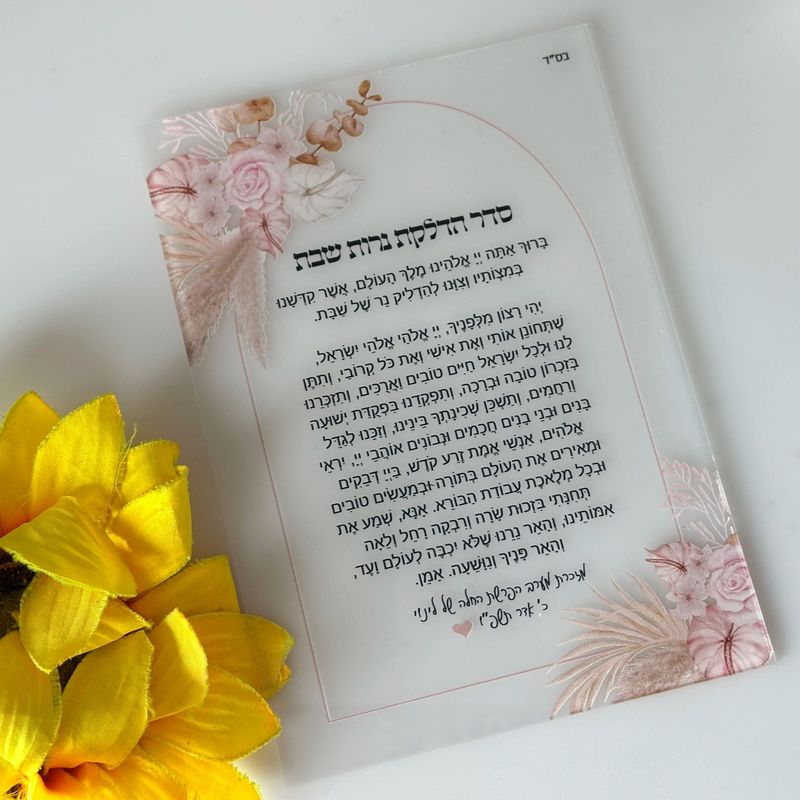 בס"ד
סדר הדלקת נרות שבת
בָּרוּךְ אַתָּה יְיָ אֱלֹהֵינוּ מֶלֶךְ הָעוֹלָם, אֲשֶׁר קִדְּשָׁנוּ
בְּמִצְוֹתָיו וְצִוָּנוּ לְהַדְלִיק נֵר שֶׁל שַׁבָּת.
יְהִי רָצוֹן מִלְּפָנֶיךָ, יְיָ אֱלֹהַי אֱלֹהֵי יִשְׂרָאֵל,
שֶׁתְּחוֹנֵן אוֹתִי וְאֶת אִישִׁי וְאֶת כֹּל קְרוֹבַי, וְתִתֵּן
לָנוּ וּלְכָל יִשְׂרָאֵל חַיִּים טוֹבִים וַאֲרֻכִּים, וְתִזְכְּרֵנוּ
בְּזִכְרוֹן טוֹבָה וּבְרָכָה, וְתִפְקְדֵנוּ בִּפְקֻדַּת יְשׁוּעָה
וְרַחֲמִים, וְתַשְׁכֵּן שְׁכִינָתְךָ בֵּינֵינוּ, וְזַכֵּנוּ לְגַדֵּל
בָּנִים וּבְנֵי בָנִים חֲכָמִים וּנְבוֹנִים אוֹהֲבֵי יְיָ, יִרְאֵי
אֱלֹהִים, אַנְשֵׁי אֱמֶת זֶרַע קֹדֶשׁ, בַּייָ דְּבֵקִים
וּמְאִירִים אֶת הָעוֹלָם בְּתוֹרָה וּבְמַעֲשִׂים טוֹבִים
וּבְכָל מְלֶאכֶת עֲבוֹדַת הַבּוֹרֵא. אָנָּא, שְׁמַע אֶת
תְּחִנָּתִי בִּזְכוּת שָׂרָה וְרִבְקָה רָחֵל וְלֵאָה
אִמּוֹתֵינוּ, וְהָאֵר נֵרֵנוּ שֶׁלֹּא יִכְבֶּה לְעוֹלָם וָעֶד,
וְהָאֵר פָּנֶיךָ וְנִוָּשֵׁעָה. אָמֵן.
מזכרת מערב הפרשת החלה של לינוי
כ' אדר תשפ"ו